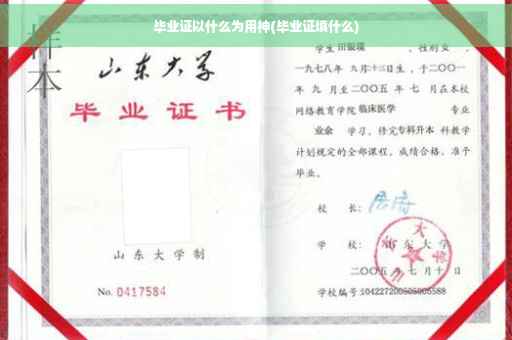 毕业证以什么为用神(毕业证填什么)
样本
山东大学
毕业证书
山东大学制
No. 0417584
学生 田银瑞 ，性别 女 ，
一九七八年 九月十二日生，于二〇〇一
年 九 月至二〇〇五 年 七 月在本校
网络教育学院 临床医学 专业
业余 学习，修完专科升本 科教学
计划规定的全部课程，成绩合格，准予
毕业。
校 长：
学 校：山东大学
二〇〇五 年 七 月 十 日
学校编号:104227200505005588